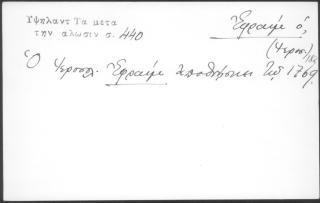 Ὑψηλαντ Τα μετα
την αλωσιν σ. 440
Ἐφραίμ ὁ,
(Ἱεροσ.)
Ὁ Ἱεροσολ. Ἐφραίμ ἀποθνήσκει 1769.